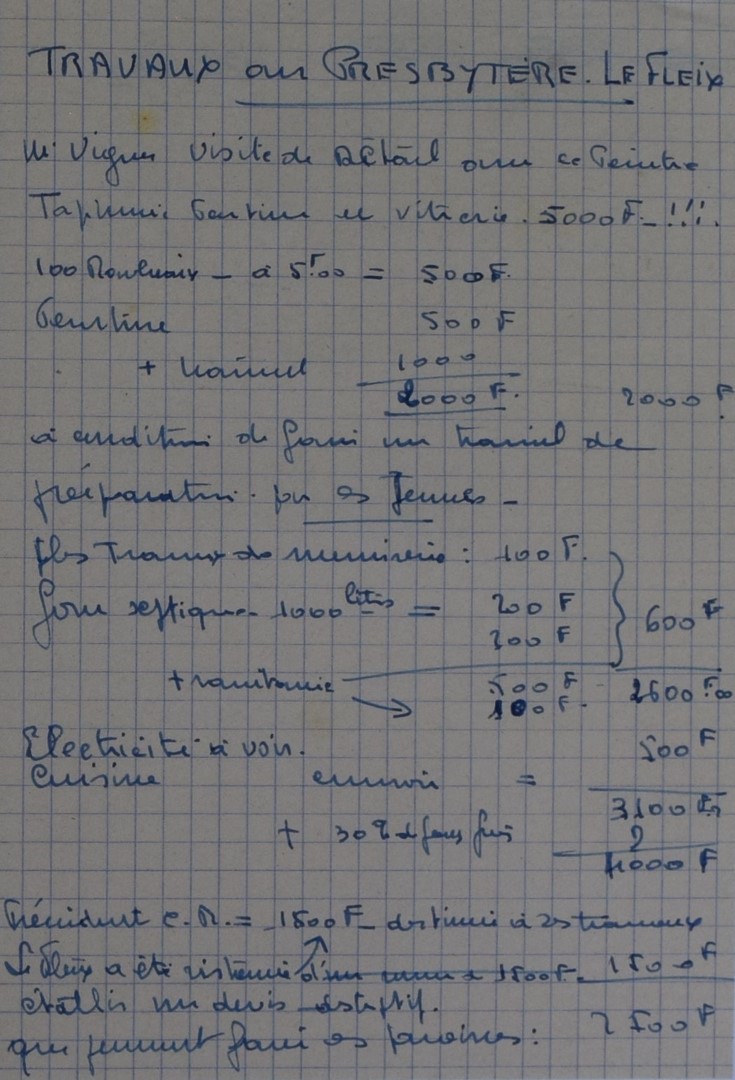 TRAVAUX au PRESBYTERE. LE FLEIX
Mr Vigner visite de Détail avec ce Peintre
Tapisserie Peinture et vitrerie. 5000F_!!!.
100 Rouleaux _ à 5F00 = 500F.
Peinture 500F
+ travail 1000
2000F. 2000F
à condition de faire un travail de
préparation. par les Jeunes _
Plus Travaux de menuiserie : 100F.
fosse septique 1000 litres = 200F
200F 600F
+ 500F 2600F00
100F.
Electricité à voir. 500F
Cuisine environ =
3100F
+ 30% de faux frais ?
4000F
Président C.R. = 1500F destinée à ces travaux
Le Fleix a été 1500F. 1500F
établir un devis
que peuvent faire les paroisses : 2500F